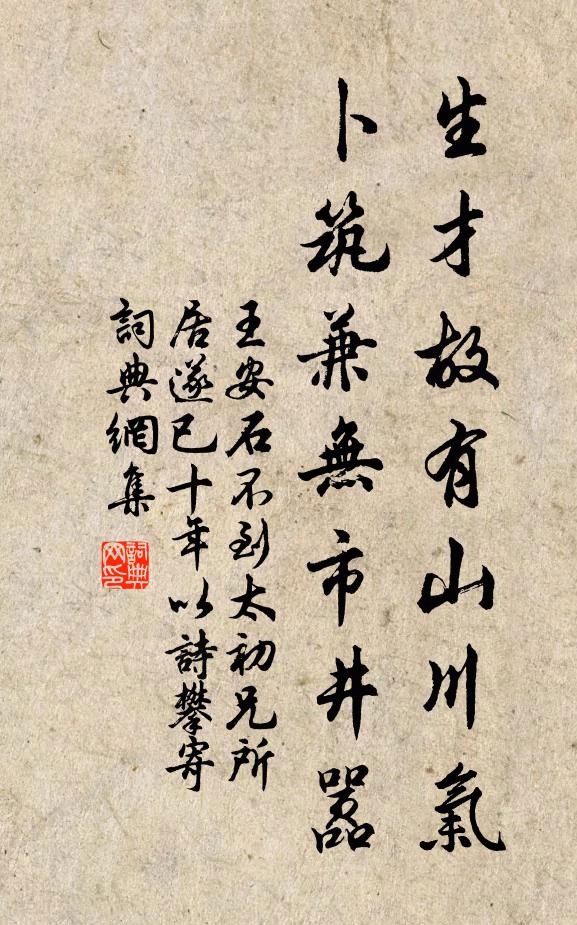 生才故有山川氣
卜筑兼無市井囂
王安石不到太初兄所
居遂已十年以詩攀寄
詞典網集
詞典
网印